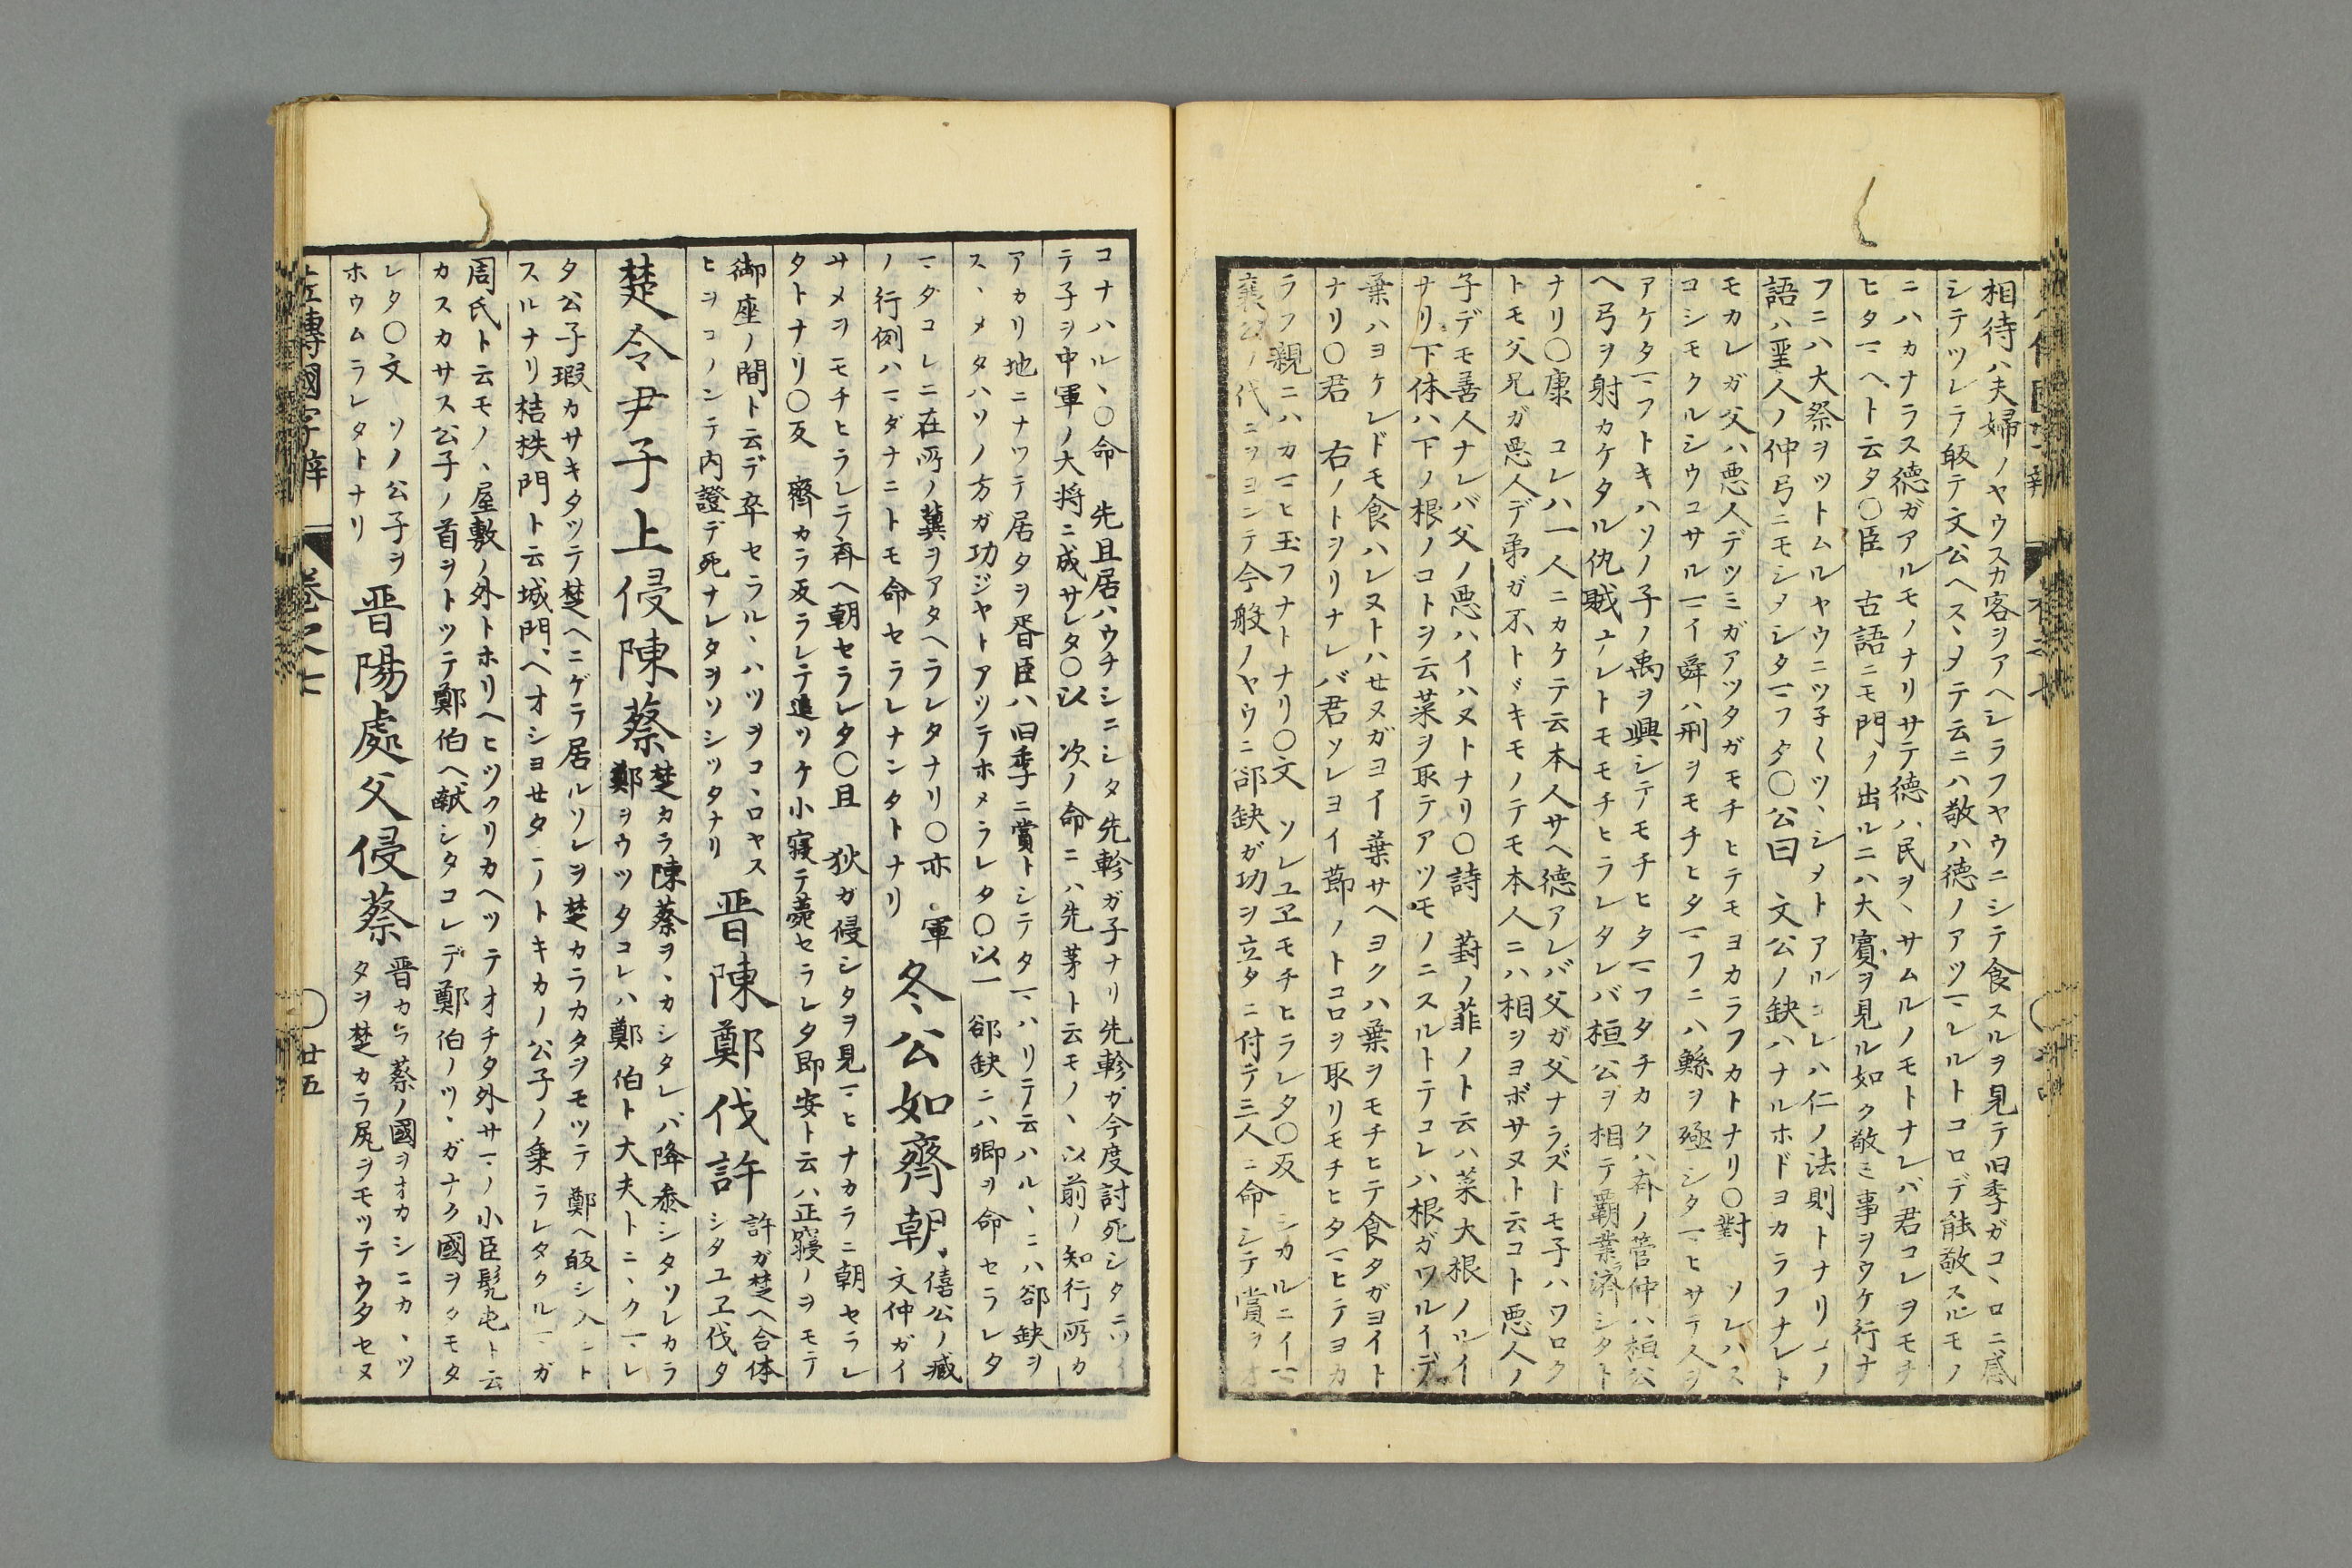 相待ハ夫婦ノヤウスカ客ヲアヘシラフヤウニシテ食スルヲ見テ旧季ガコヽロニ感
シテツレテ皈テ文公ヘスヽメテ云ニハ敬ハ徳ノアツマレルトコロデ能敬スルモノ
ニハカナラス徳ガアルモノナリサテ徳ハ民ヲヽサムルノモトナレバ君コレヲモチ
ヒタマヘト云タ〇臣 古語ニモ門ノ出ルニハ大賓ヲ見ル如ク敬ミ事ヲウケ行ナ
フニハ大祭ヲツトムルヤウニツ子〱ツヽシメトアルコレハ仁ノ法則トナリコノ
語ハ聖人ノ仲弓ニモシメシタマフタ〇公曰 文公ノ缺ハナルホドヨカラフナレト
モカレガ父ハ悪人デツミガアツタガモチヒテモヨカラフカトナリ〇對 ソレハス
コシモクルシウコサルマイ舜ハ刑ヲモチヒタマフニハ鯀ヲ殛シタマヒサテ人ヲ
アケタマフトキハソノ子ノ禹ヲ興シテモチヒタマフタチカクハ斉ノ管仲ハ桓公
ヘ弓ヲ射カケタル仇賊ユヘレトモモチヒラレタレバ桓公ヲ相テ覇業済シタト
ナリ〇康 コレハ一人ニカケテ云本人サヘ徳アレバ父ガ父ナラズトモ子ハワロク
トモ父兄ガ悪人デ弟ガ不トヾキモノテモ本人ニハ相ヲヨボサヌト云コト悪人ノ
子デモ善人ナレバ父ノ悪ハイハヌトナリ〇詩 葑ノ菲ノト云ハ菜大根ノルイ
ナリ下体ハ下ノ根ノコトヲ云菜ヲ取テアツモノニスルトテコレハ根ガワルイデ
葉ハヨケレドモ食ハレヌトハセヌガヨイ葉サヘヨクハ葉ヲモチヒテ食タガヨイト
ナリ〇君 右ノトヲリナレバ君ソレヨイ節ノトコロヲ取リモチヒタマヒテヨカ
ラフ親ニハカマヒ玉フナトナリ〇文 ソレユヱモチヒラレタ〇反 シカルニイマ
襄公ノ代ニヲヨンテ今般ノヤウニ郤缺ガ功ヲ立タニ付テ三人ニ命シテ賞ヲオ
コナハルヽ〇命 先且居ハウチシニシタ先軫ガ子ナリ先軫ガ今度討死シタニツイ
テ子ヲ中軍ノ大将ニ成サレタ〇以 次ノ命ニハ先茅ト云モノヽ以前ノ知行所カ
アカリ地ニナツテ居タヲ胥臣ハ旧季ニ賞トシテタマハリテ云ハルヽニハ郤缺ヲ
スヽメタハソノ方ガ功ジヤトアツテホメラレタ〇以一 郤缺ニハ卿ヲ命セラレタ
マダコレニ在所ノ冀ヲアタヘラレタナリ〇亦 軍
ノ行例ハマダナニトモ命セラレナンタトナリ
冬公如齊朝
僖公ノ臧
文仲ガイ
サメヲモチヒラレテ斉ヘ朝セラレタ〇且 狄ガ侵シタヲ見マヒナカラニ朝セラレ
タトナリ〇反 齊カラ反ラレテ追ツケ小寝テ薨セラレタ即安ト云ハ正寝ノヲモテ
御座ノ間ト云デ卒セラルヽハツヲコヽロヤス
ヒヲコノンテ内證デ死ナレタヲソシツタナリ
晋陳鄭伐許
許ガ楚ヘ合体
シタユヱ伐タ
楚令尹子上侵陳蔡
楚カラ陳蔡ヲヽカシタレバ降参シタソレカラ
鄭ヲウツタコレハ鄭伯ト大夫トニヽクマレ
タ公子瑕カサキタツテ楚ヘニゲテ居ルソレヲ楚カラカタヲモツテ鄭ヘ皈シ入ント
スルナリ桔柣門ト云城門ヘオシヨセタマノトキカノ公子ノ乗ラレタクルマガ
周氏ト云モノヽ屋敷ノ外トホリヘヒツクリカヘツテオチタ外サマノ小臣髡屯ト云
カスカサス公子ノ首ヲトツテ鄭伯ヘ献シタコレデ鄭伯ノツヽガナク國ヲタモタ
レタ〇文 ソノ公子ヲ
ホウムラレタトナリ
晋陽處父侵蔡
晋カラ蔡ノ國ヲオカシニカヽツ
タヲ楚カラ尻ヲモツテウタセヌ
左傳國字辯 巻之七 〇廿五